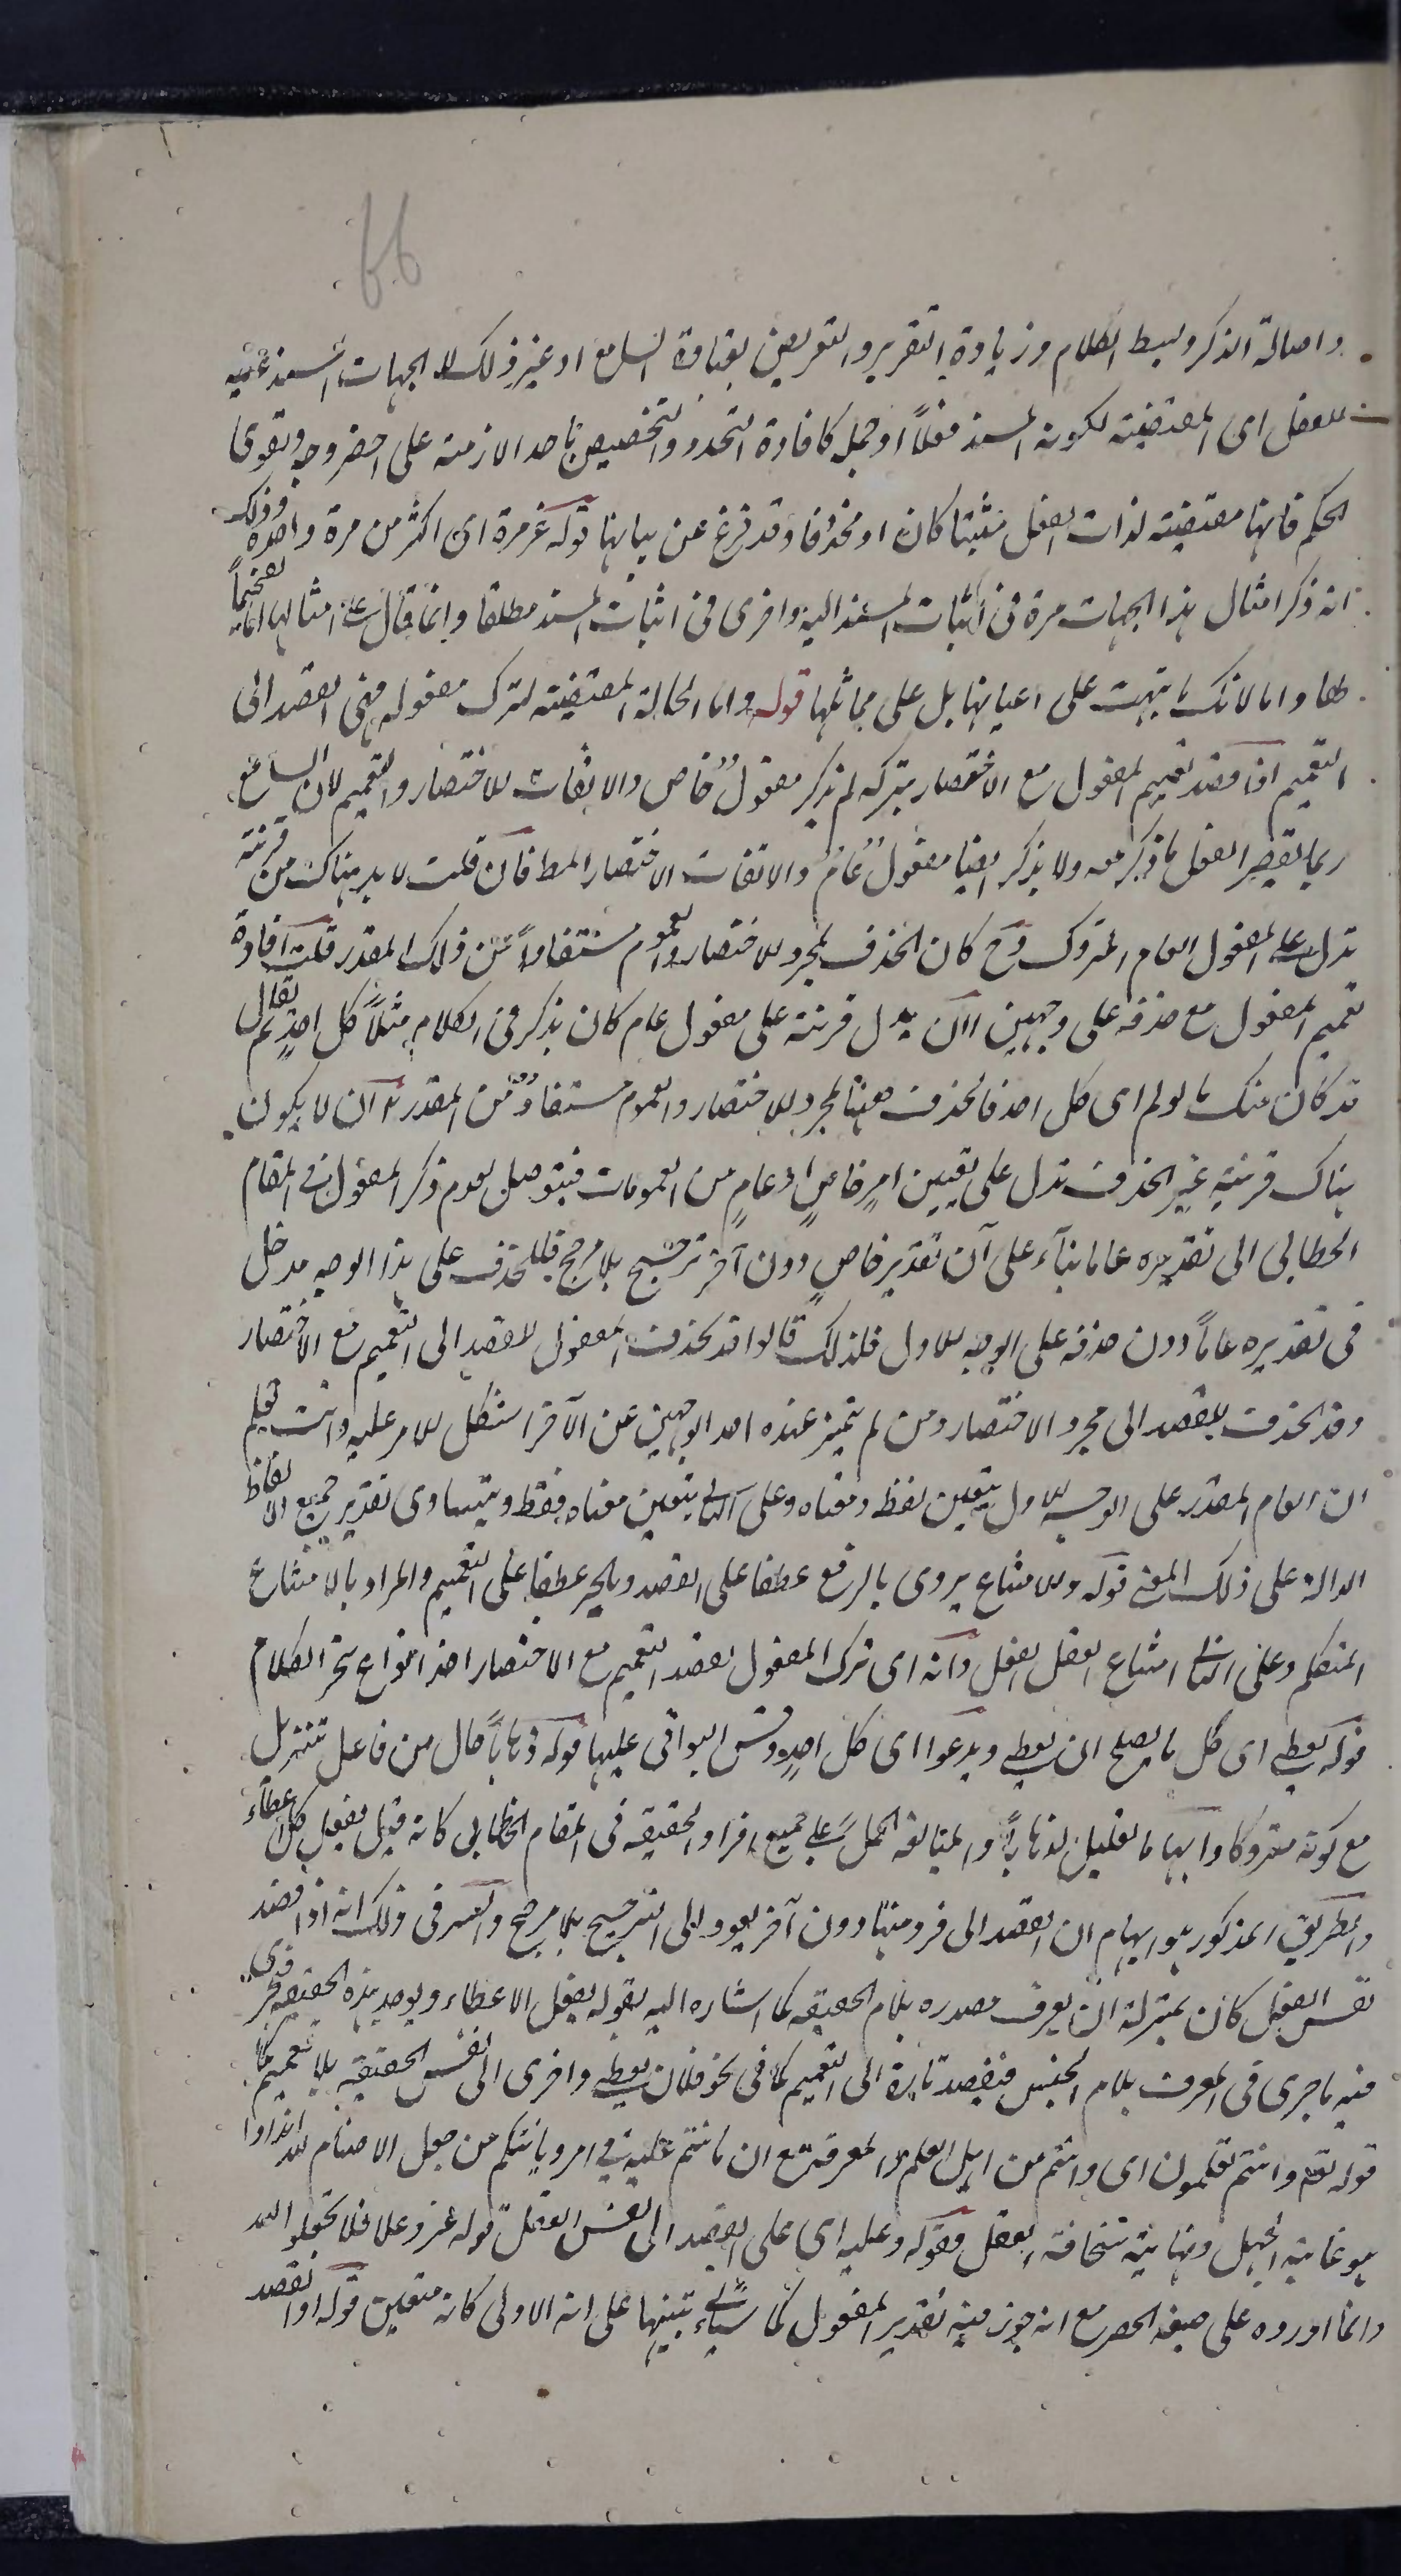 66
واصالة الذكر وبسط الكلام وزيادة التقرير والتعريض بغباوة السامع او غير ذلك لا الجهات المستدعية
للفعل اى المقتضية لكون المسند فعلاً او جملة كافادة التجدد والتخصيص باحد الازمنة على اخصر وجه وتقوى
الحكم فانها مقتضية لذات الفعل مثبتا كان او محذوفا وقد فرغ عن بيانها قوله غير مرة اى اكثر من مرة واحدة وذلك
انه ذكر امثال هذا الجهات مرة فى اثبات المسند اليه واخرى فى اثبات المسند مطلقا وانما قال على امثالها اما تفخيماً
لها واما لانك ما نبهت على اعيانها بل على مماثلها قوله واما الحالة المقتضية لترك مفعوله فهى القصد الى
التعميم اذا قصد تعميم المفعول مع الاختصار بتركه لم يذكر مفعول خاص والا لفات للاختصار والتعميم لان السامع
ربما يقصر الفعل ما ذكر معه ولا يذكر ايضا مفعول عام والا لفات الاختصار المط فان قلت لا بد هناك من قرينة
تدل على المفعول العام المتروك وح كان الحذف لمجرد للاختصار والعموم مستفاداً من ذلك المقدر قلت افادة
تعميم المفعول مع حذفه على وجهين ا ان يدل قرينة على مفعول عام كان يذكر فى الكلام مثلاً كل احد ثم يقال
قد كان منك ما يولم اى كل احد فالحذف ههنا لمجرد للاختصار والعموم مستفاد من المقدر ب ان لا يكون
هناك قرينة غير الحذف تدل على تعيين امر خاص او عام من العمومات فيتوصل بعدم ذكر المفعول فى المقام
الخطابى الى تقديره عاما بناء على ان تقدير خاص دون آخر ترجيح بلا مرجح فللحذف على هذا الوجه مدخل
فى تقديره عاماً دون حذفه على الوجه للاول فلذلك قالوا قد يحذف المفعول للقصد الى التعميم مع الاختصار
وقد يحذف للقصد الى مجرد الاختصار ومن لم يتميز عنده احد الوجهين عن الآخر استشكل للامر عليه وانت تعلم
ان العام المقدر على الوجه للاول يتعين لفظه ومعناه وعلى الثانى يتعين معناه فقط ويتساوى تقدير جميع الالفاظ
الدالة على ذلك المعنى قوله وللامتناع يروى بالرفع عطفا على القصد وبالجر عطفا على التعميم والمراد بالامتناع
المتكلم وعلى الثانى امتناع الفعل الفعل وانه اى ترك المفعول لقصد التعميم مع الاختصار احد انواع سحر الكلام
قوله يعطى اى كل ما يصلح ان يعطى ويدعوا اى كل احد وقس البواقى عليها قوله ذهاباً حال من فاعل تنزيل
مع كونه متروكا وايهاما تعليل لذهاباً والمبالغه الحمل على جميع افراد الحقيقه فى المقام الخطابى كانه قيل يفعل كل اعطاء
والطريق المذكور هو ايهام ان القصد الى فرد منها دون آخر يعود الى الترجيح بلا مرجح والسر فى ذلك انه اذا قصد
نفس الفعل كان بمنزلة ان يعرف مصدره بلام الحقيقه كما اشار اليه بقوله يفعل الاعطاء ويوجد هذه الحقيقه فجرى
فيه ما جرى فى المعرف بلام الجنس فيقصد تارة الى التعميم كما فى نحو فلان يعطى واخرى الى نفس الحقيقه بلا تعميم كما
قوله تعم وانتم تعلمون اى وانتم من اهل العلم والمعرفة مع ان ما انتم عليه فى امر ديانتكم من جعل الاصنام لله اندادا
هو غاية الجهل ونهاية سخافة العقل وقوله وعليه اى على القصد الى نفس الفعل قوله عز وعلا فلا تجعلوا لله
وانما اورده على صيغه الحصر مع انه جوز فيه تقدير المفعول كما سياتى تنبيها على انه الاولى كانه متعين قوله او القصد